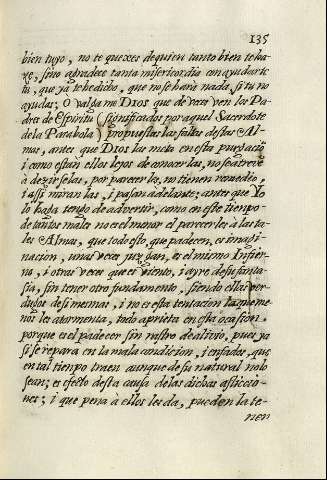 135
bien tuyo, no te quexes de quien tanto bien te ha-
ze, sino agradece tanta misericordia con ayudarte
tu, que ya te he dicho, que no se hará nada, si tu no
ayudas; O valgame DIOS que de vezes ven los Pa-
dres de Espiritu (significados por aquel Sacerdote
de la Parabola) propuestas las faltas destas Al-
mas, antes que DIOS las meta en esta purgació
i como están ellos lejos de conocerlas, no se atreve
á dezirselas, por parecerle, no tienen remedio,
i assi miran las, i pasan adelante; antes que Yo
lo haga tengo de advertir, como en este tiempo
de tantos males no es el menor el parecerles á las ta-
les Almas, que todo esto, que padecen, es imagi-
nación, unas vezes juzgan, es el mismo Infier-
no, i otras vezes que es viento, i ayre de su fanta-
sia, sin tener otro fundamento, siendo ellas ver-
dugos de si mesmas, i no es esta tentacion la que me-
nos les atormenta, todo aprieta en esta ocasion
porque es el padecer sin rastro de alivio, pues ya
si se repara en la mala condicion, i enfados, que
en tal tiempo traen aunque de su natural no lo
sean; es efecto desta causa de las dichas afliccio-
nes; i que pena á ellos les da, pueden la te-
nen